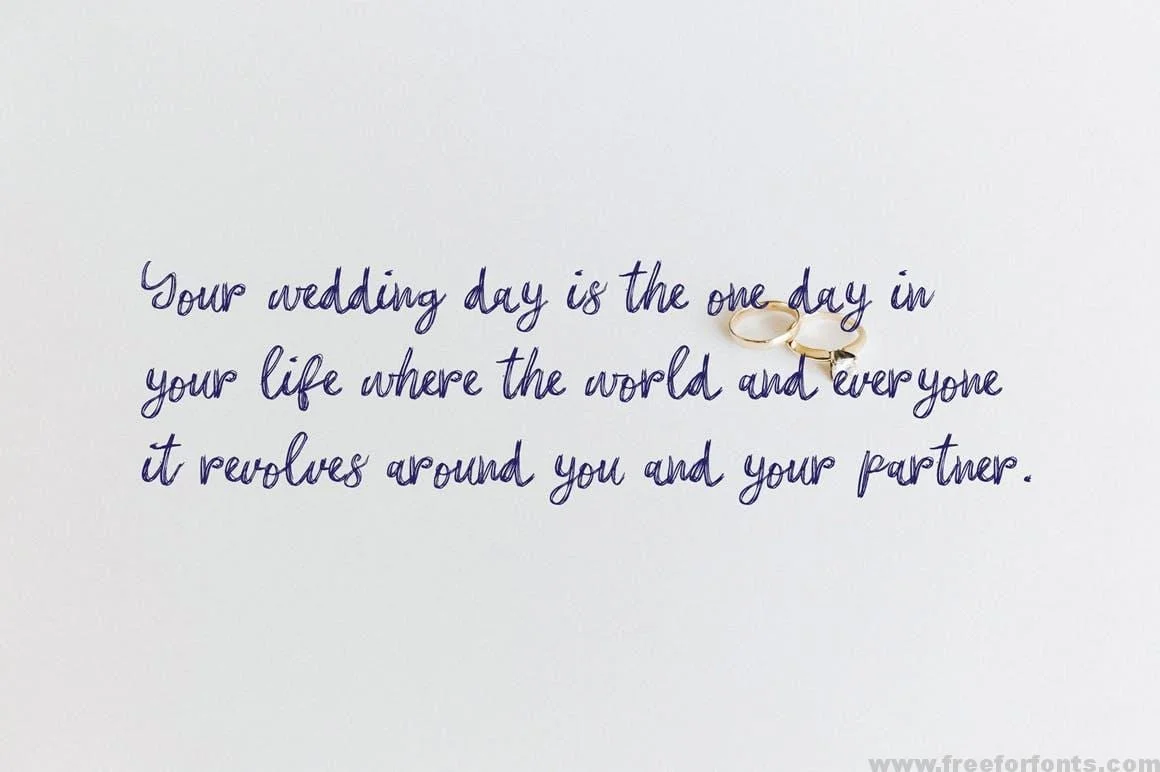 Your wedding day is the one day in
your life where the world and everyone
it revolves around you and your partner.
www.freeforfonts.com